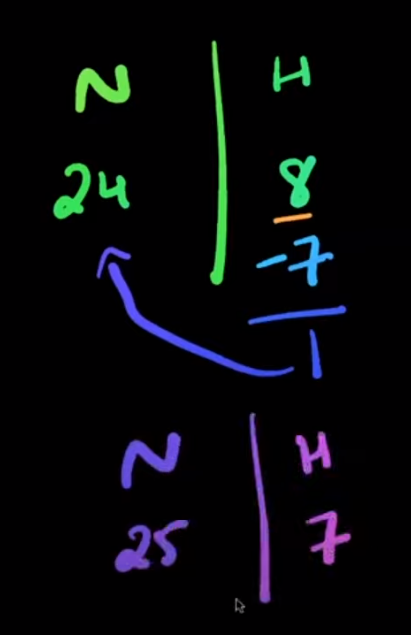 N H
24 8
-7
1
N H
25 7